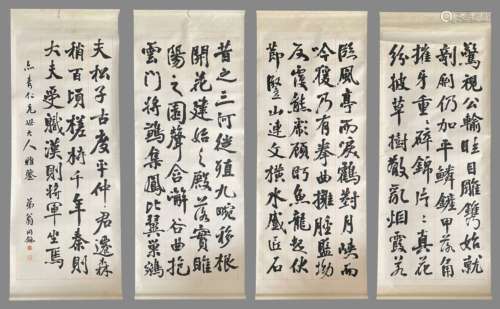 驚視公輸眩目雕鐫始就
剞劂仍加平鱗鏟甲落角
摧牙重々碎錦片々真花
紛披草樹散亂烟霞若
臨風亭而唳鶴對月峽而
吟猨乃有拳曲擁腫盤坳
反覆熊彪顧盼魚龍起伏
節豎山連文橫水蹙匠石
昔之三河徙植九畹移根
開花建始之殿落實睢
陽之園聲含嶰谷曲抱
雲門將鶵集鳳比翼巢鴛
夫松子古度平仲君遷森
梢百頃槎枿千年秦則
大夫受職漢則將軍坐焉
仁兄世大人雅鑒 弟翁同龢